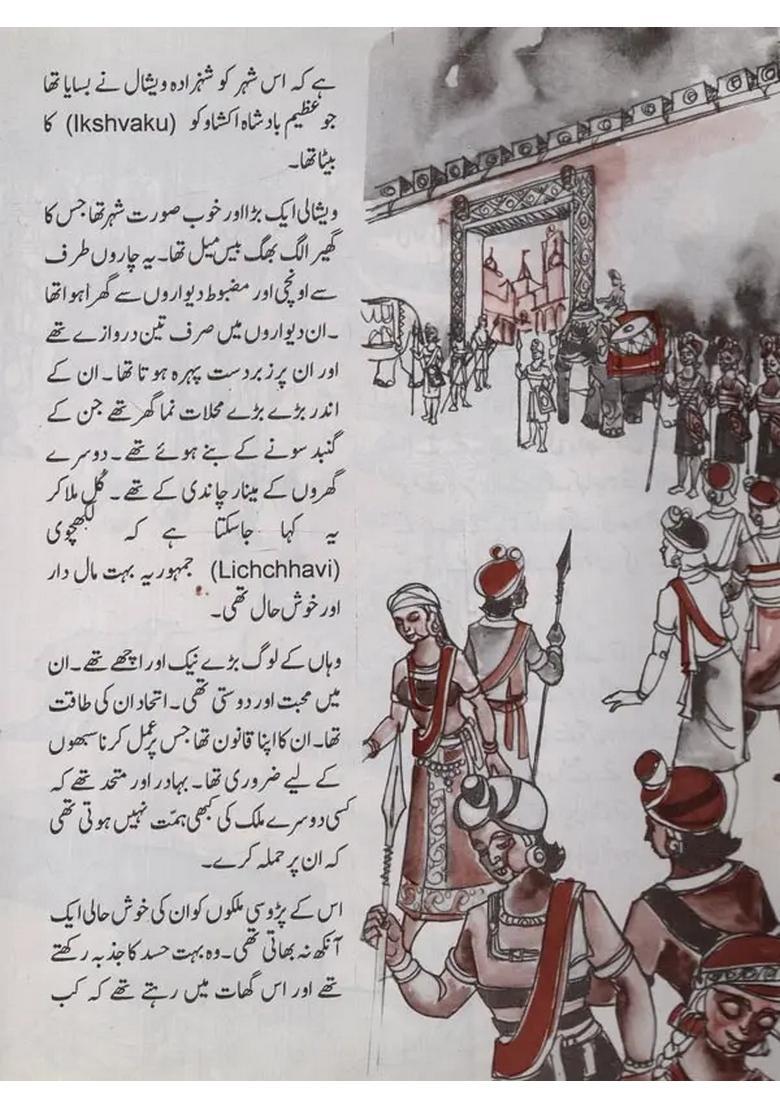 ہے کہ اس شہر کو شہزادہ ویشال نے بسایا تھا
جو عظیم بادشاہ اکشاوکو (Ikshvaku) کا
بیٹا تھا۔
ویشالی ایک بڑا اور خوب صورت شہر تھا جس کا
گھیرا لگ بھگ بیس میل تھا۔ یہ چاروں طرف
سے اونچی اور مضبوط دیواروں سے گھرا ہوا تھا
۔ان دیواروں میں صرف تین دروازے تھے
اور ان پر زبردست پہرہ ہوتا تھا۔ ان کے
اندر بڑے بڑے محلات نما گھر تھے جن کے
گنبد سونے کے بنے ہوئے تھے۔ دوسرے
گھروں کے مینار چاندی کے تھے۔ کُل ملا کر
یہ کہا جاسکتا ہے کہ لکھچوی
(Lichchhavi) جمہوریہ بہت مال دار
اور خوش حال تھی۔
وہاں کے لوگ بڑے نیک اور اچھے تھے۔ ان
میں محبت اور دوستی تھی۔ اتحاد ان کی طاقت
تھا۔ ان کا اپنا قانون تھا جس پر عمل کرنا سبھوں
کے لیے ضروری تھا۔ بہادر اور متحد تھے کہ
کسی دوسرے ملک کی کبھی ہمّت نہیں ہوتی تھی
کہ ان پر حملہ کرے۔
اس کے پڑوسی ملکوں کو ان کی خوش حالی ایک
آنکھ نہ بھاتی تھی۔ وہ بہت حسد کا جذبہ رکھتے
تھے اور اس گھات میں رہتے تھے کہ کب